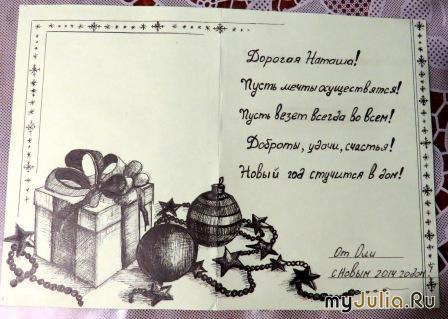 Дорогая Наташа!
Пусть мечты осуществятся!
Пусть везет всегда во всем!
Доброты, удачи, счастья!
Новый год стучится в дом!
От Оли
с Новым 2014 годом
myJulia.Ru